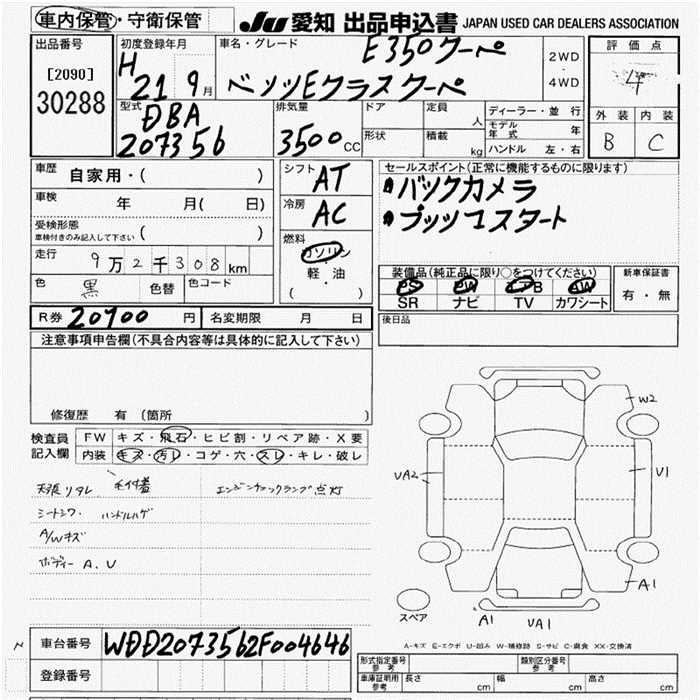 車内保管・守衛保管 JU 愛知 出品申込書 JAPAN USED CAR DEALERS ASSOCIATION
出品番号 [2090] 30288
初度登録年月 H 21 9月
車名・グレード E350クーペ
ベンツEクラスクーペ
2WD・4WD
評価点 4
外装 内装
B C
型式 DBA 207356
排気量 3500CC
ドア 定員 人
形状 積載 kg
ディーラー・並行
モデル年式 年
ハンドル 左・右
車歴 自家用・( )
車検 年 月( 日)
受検形態 車検付きのみ記入して下さい ( )
走行 9万2千308km
色 黒 色替 色コード
シフト AT
冷房 AC
燃料 ガソリン
軽・油
( )
セールスポイント(正常に機能するものに限ります)
・バックカメラ
・プッシュスタート
装備品(純正品に限り○をつけてください)
PS PW AB AW
SR ナビ TV カワシート
新車保証書
有・無
R券 20700円 名変期限 月 日
後日品
注意事項申告欄(不具合内容等は具体的に記入して下さい)
修復歴 有(箇所 )
検査員記入欄
FW キズ・飛石・ヒビ割・リペア跡・X要
内装 キズ・汚レ・コゲ・穴・スレ・キレ・破レ
天張りタレ 毛付着 エンジンチェックランプ点灯
シートシワ・ハンドルハゲ
A/Wキズ
ボディー A.U
W2
UA2
U1
A1
スペア
A1 UA1
A-キズ E-エクボ U-凹み W-補修跡 S-サビ C-腐食 XX-交換済
車台番号 WDD2073562F004646
登録番号
形式指定番号 参考 類別区分番号 参考
車庫証明用 参考 長さ cm 幅 cm 高さ cm